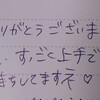 りがとうございま
、すっごく上手で
待ちしてますネ♡